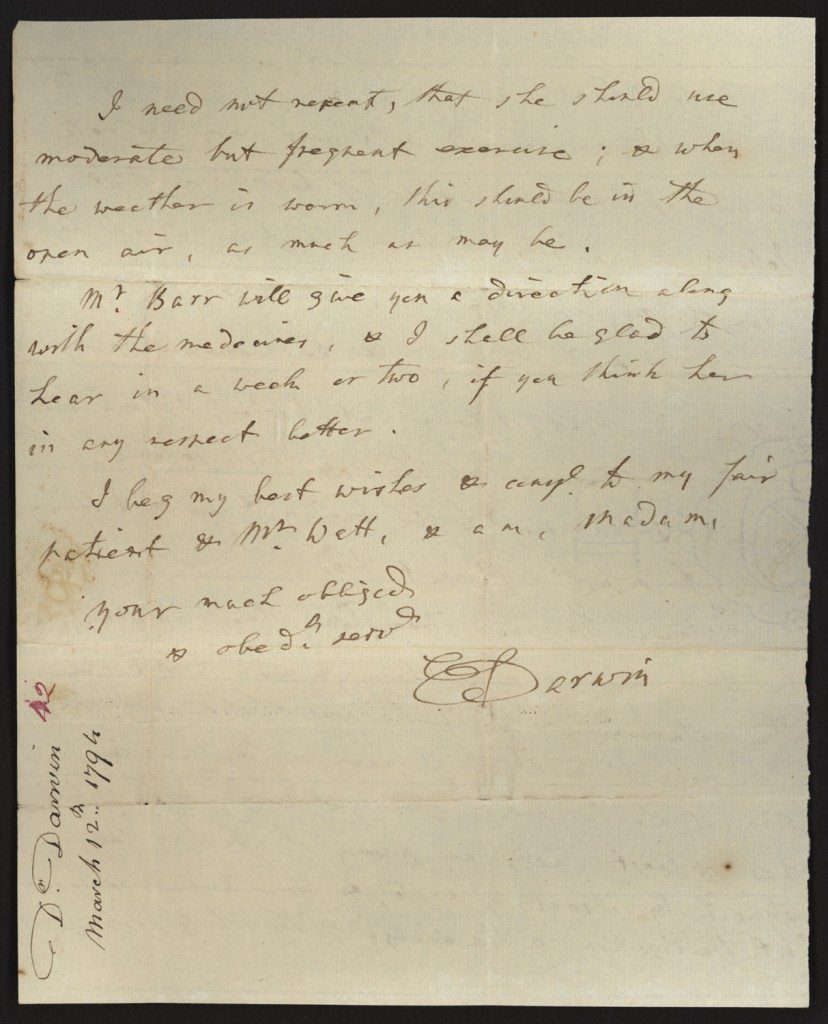 I need not repeat, that she should use
moderate but frequent exercise; & when
the weather is warm, this should be in the
open air, as much as may be.
Mr. Barr will give you a direction along
with the medecines, & I shall be glad to
hear in a week or two, if you think her
in any respect better.
I beg my best wishes & compl. to my fair
patient & Mr. Watt, & am, Madam,
your much obliged
& obed.t serv.t
E Darwin
42
D.r Darwin
March 12.th 1794